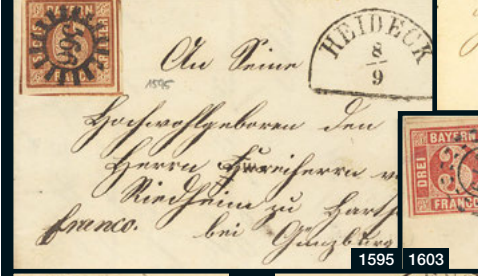 BAYERN
SECHS
366
HEIDECK
8
9
An Seine
1595
Hochwohlgeboren den
Herrn Freiherrn v
Riedheim zu Harth
franco. bei Günzburg
BAYERN
DREI
FRANCO
1595 1603